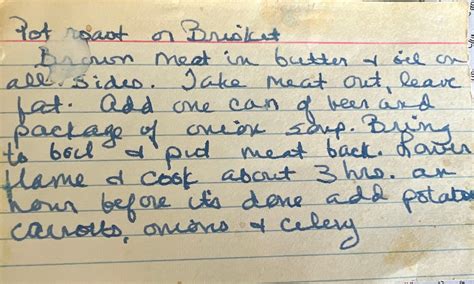 Pot roast or Brisket
Brown meat in butter & oil on
all sides. Take meat out, leave
fat. Add one can of beer and
package of onion soup. Bring
to boil & put meat back. Lower
flame & cook about 3 hrs. an
hour before its done add potatoes
carrots, onions & celery